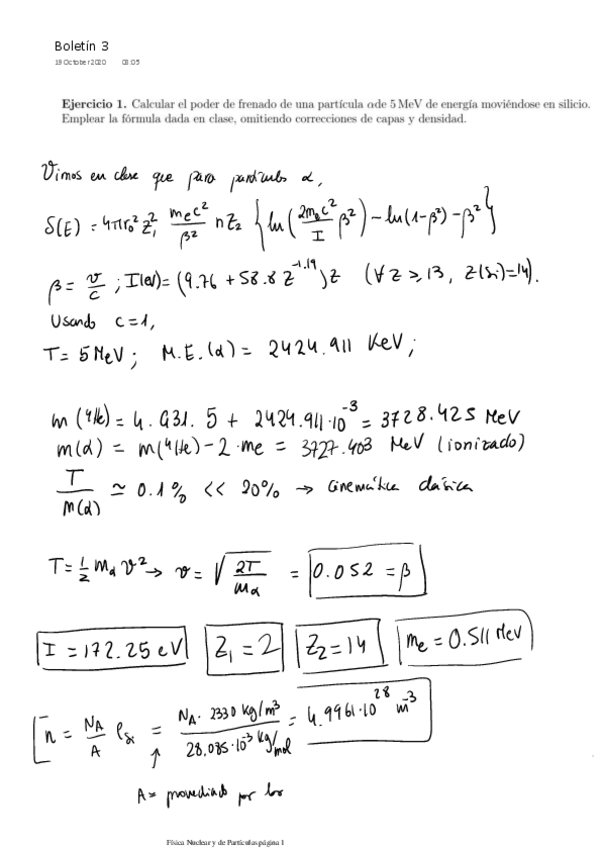 Boletín 3
19 October 2020 08:05
Ejercicio 1. Calcular el poder de frenado de una partícula αde 5 MeV de energía moviéndose en silicio.
Emplear la fórmula dada en clase, omitiendo correcciones de capas y densidad.
Vimos en clase que para partículas α,
S(E) = 4πr₀² Z₁² mₑc²/β² n Z₂ { ln(2mₑc²/I β²) - ln(1-β²) - β² }
β = v/c ; I(eV) = (9.76 + 58.8 Z^-1.19) Z (∀ Z ≥ 13, Z(Si)=14).
Usando c = 1,
T = 5 MeV ; M.E.(α) = 2424.911 KeV ;
m(⁴He) = 4·931.5 + 2424.911·10⁻³ = 3728.425 MeV
m(α) = m(⁴He) - 2·me = 3727.403 MeV (ionizado)
T/m(α) ≃ 0.1% << 20% → Cinemática clásica
T = ½ mα v² → v = √(2T/mα) = 0.052 = β
I = 172.25 eV Z₁ = 2 Z₂ = 14 me = 0.511 MeV
n = N_A/A ρ_Si = N_A · 2330 kg/m³ / 28.085·10⁻³ kg/mol = 4.9961·10²⁸ m⁻³
↑
A = promediado por los
Física Nuclear y de Partículas página 1